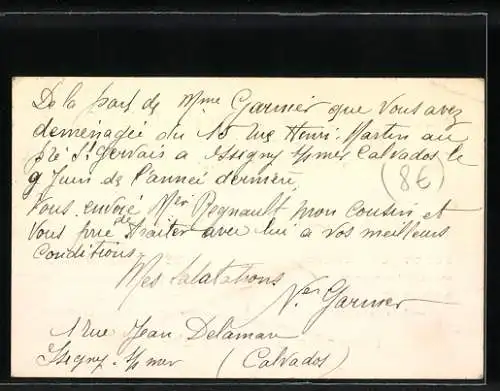 De la part de Mme Garnier que vous avez
demenagée du 15 rue Henri Martin au
pré St Gervais a Issigny s/mer Calvados le
9 Juin de l'année derniere
(8€)
Vous envoie Mer Regnault mon cousin et
Vous prie de Traiter avec lui a vos meilleurs
Conditions.
Mes Salutations
Garnier
1 Rue Jean Delamare
Issigny s/mer (Calvados)